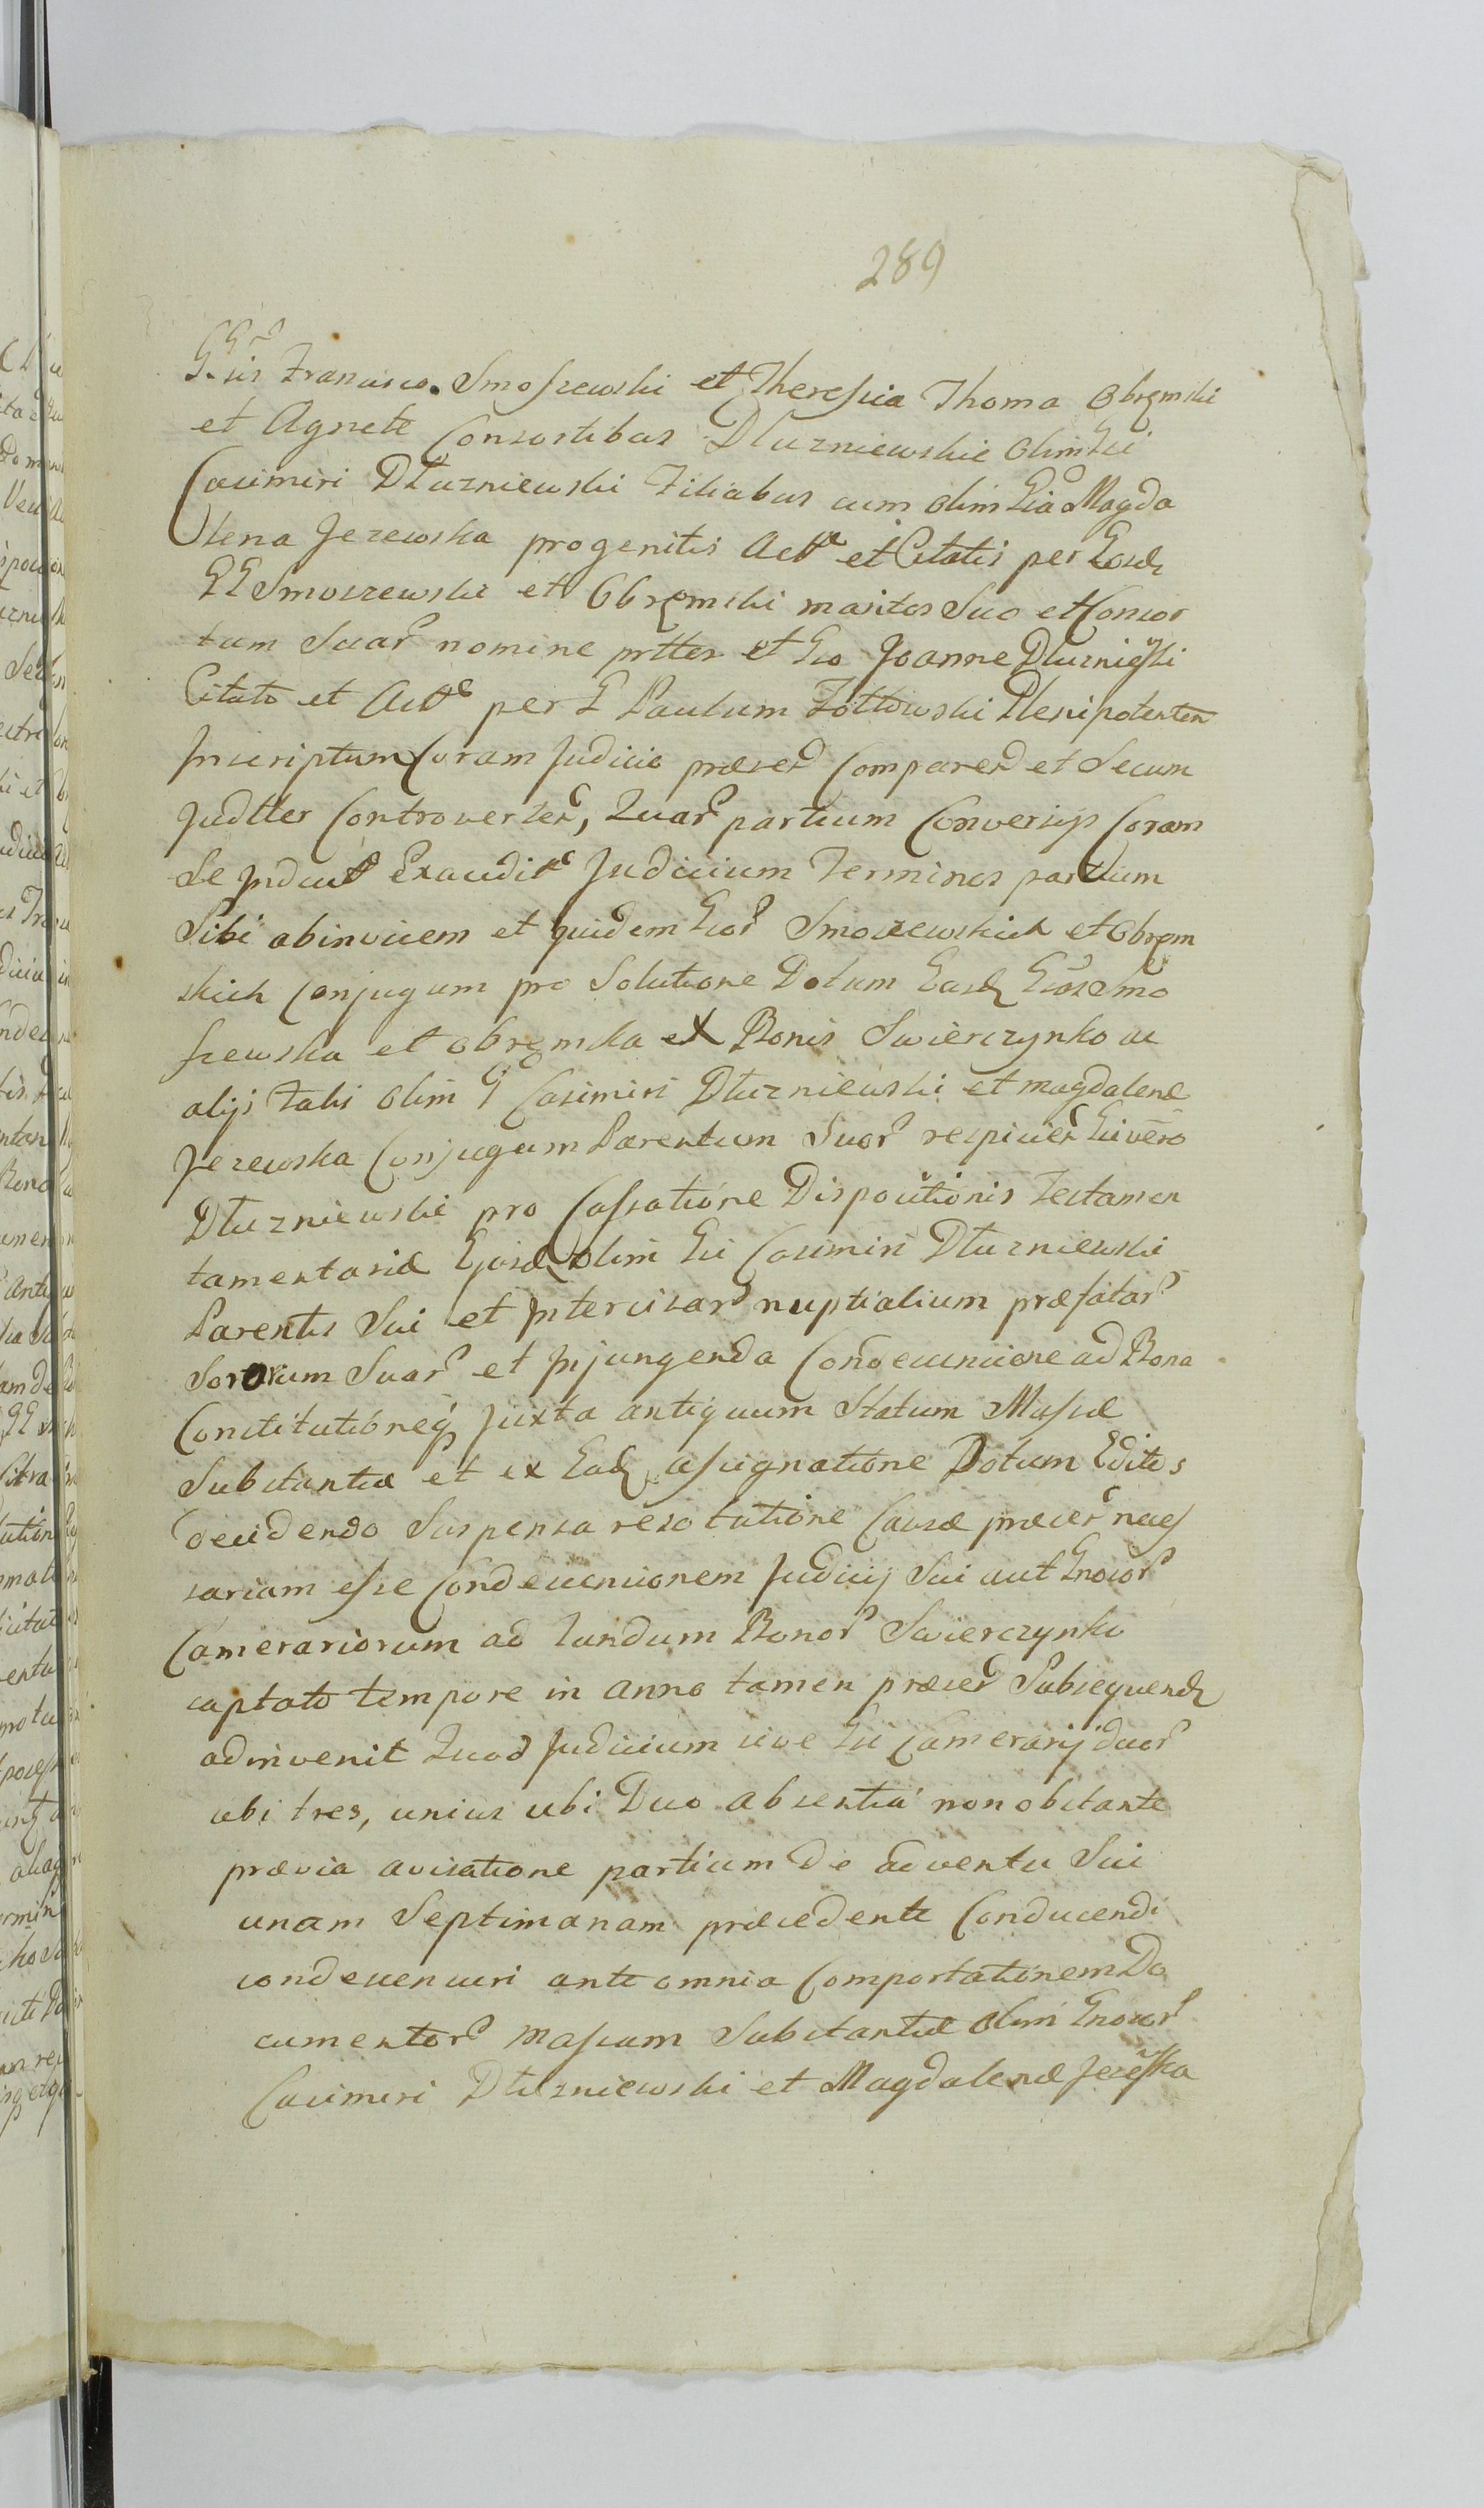 289
Francisco Smoszewski et Theressia Thoma Obrembski
et Agnete Consortibus Dłuzniewskie olim Gi
Casimiri Dłuzniewski Filiabus cum olim Gia Magda
lena Jezewska progenitis Actt et Citatis per Eosd
GG Smoszewski et Obręmski maritos Suo et Consor
tum Suar nomine prtter et Gso Joanne Dłuzniewski
Citato et Actt per G Paulum Zołtowski Plenipotenten
Inscriptum Coram Judicio præsen Comparen et Secum
Judtter Controverten, Quar partium Conversijs Coram
Se Induct Exaudit Judicium Terminos partium
Sibi abinvicem et quidem Gsor Smoszewskich et Obręm
skich Conjugum pro Solutione Dotum Easd Smo
szewska et Obręmska ex Bonis Swierczynko ac
alijs Talis olim G Casimiri Dłuzniewski et Magdalenæ
Jezewska Conjugum Parentum Suor respicien Gi vero
Dłuzniewski pro Cassatione Dispositionis Testamen
tamentariæ Ejusd olim Gi Casimiri Dłuzniewski
Parentis Sui et Intercisar nuptialium præfatar
Sororum Suar et Injungenda Condescencione ad Bona
Constitutioneq Juxta antiquum Statum Massæ
Substantiæ et ex Ead assignatione Dotum Editos
decidendo Suspensa resolutione Causæ præsen neces
sariam esse Condescencionem Judicij Sui aut Gnosor
Camerariorum ad Fundum Bonor Swierczynko
captato tempore in anno tamen præsen Subsequend
adinvenit Quod Judicium sive Gi Camerarij duor
ubi tres, unius ubi Duo absentia non obstante
prævia avisatione partium De adventu Sui
unam Septimanam præcedente Conducendi
condescensuri ante omnia Comportationem Do
cumentor massam Substantiæ olim Gnosor
Casimiri Dłuzniewski et Magdalenæ Jezewska